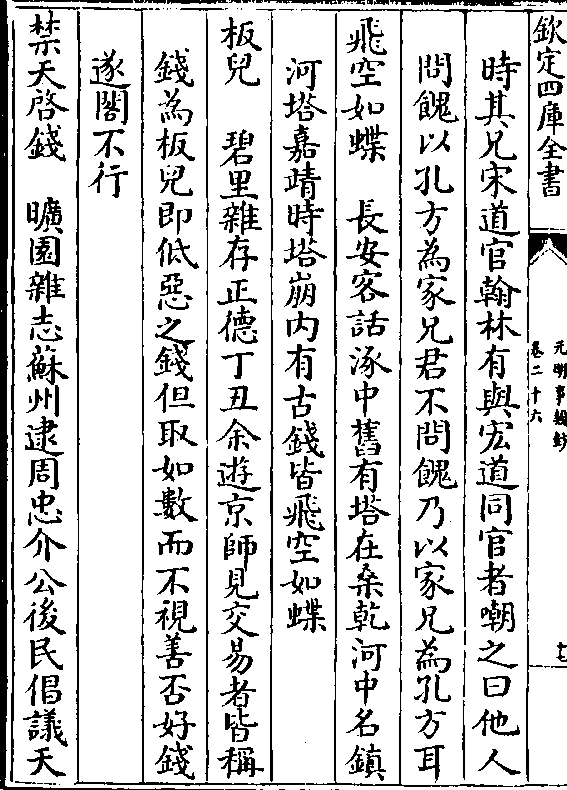 欽定四庫全書
元明事類鈔
卷二十六
時其兄宋道官翰林有與宏道同官者嘲之曰他人
問餽以孔方為家兄君不問餽乃以家兄為孔方耳
飛空如蝶　長安客話涿中舊有塔在桑乾河中名鎮
河塔嘉靖時塔崩内有古錢皆飛空如蝶
板兒　碧里雜存正德丁丑余遊京師見交易者皆稱
錢為板兒即低惡之錢但取如數而不視善否好錢
遂閣不行
禁天啓錢　曠園雜志蘇州逮周忠介公後民倡議天